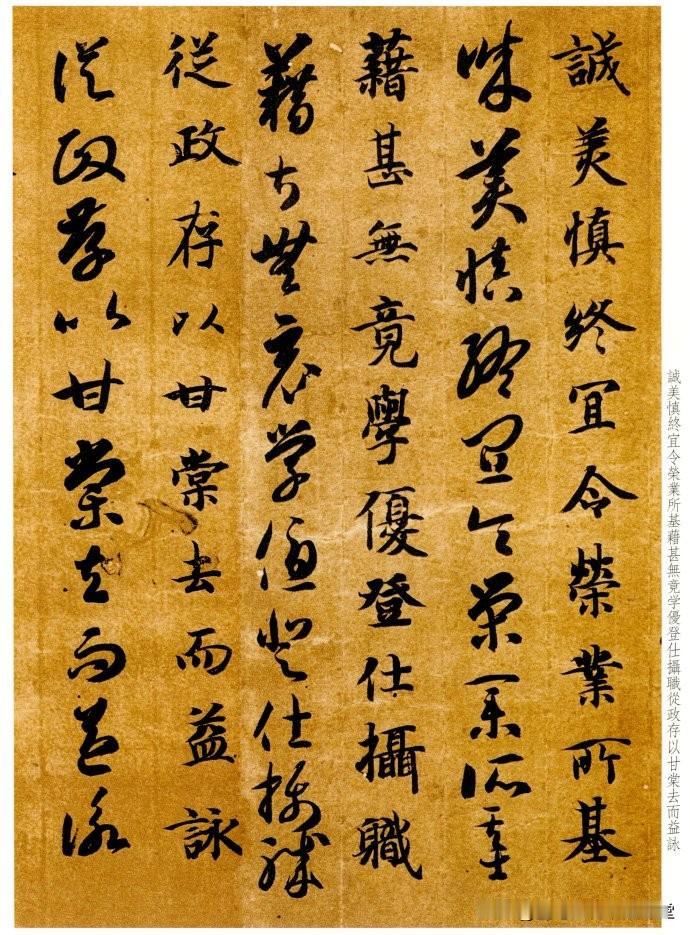 誠美慎終冝令榮業所基
誠美慎終冝令榮業所基
藉甚無竟學優登仕攝職
藉甚無竟學優登仕攝職
従政存以甘棠去而益詠
従政存以甘棠去而益詠
誠美慎終宜令榮業所基藉甚無竟学優登仕攝職從政存以甘棠去而益詠